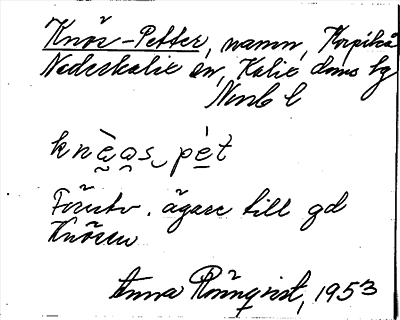 Knös-Petter, namn, Korpikå
Nederkalix sn, Kalix doms hg
Nnb l
knèas pèt
Förstv. ägare till gd
Knösen
Anna Rönnqvist, 1953